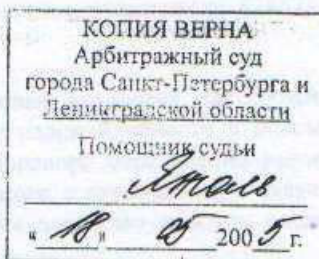 КОПИЯ ВЕРНА
Арбитражный суд
города Санкт-Петербурга и
Ленинградской области
Помощник судьи
"18" 05 2005 г.